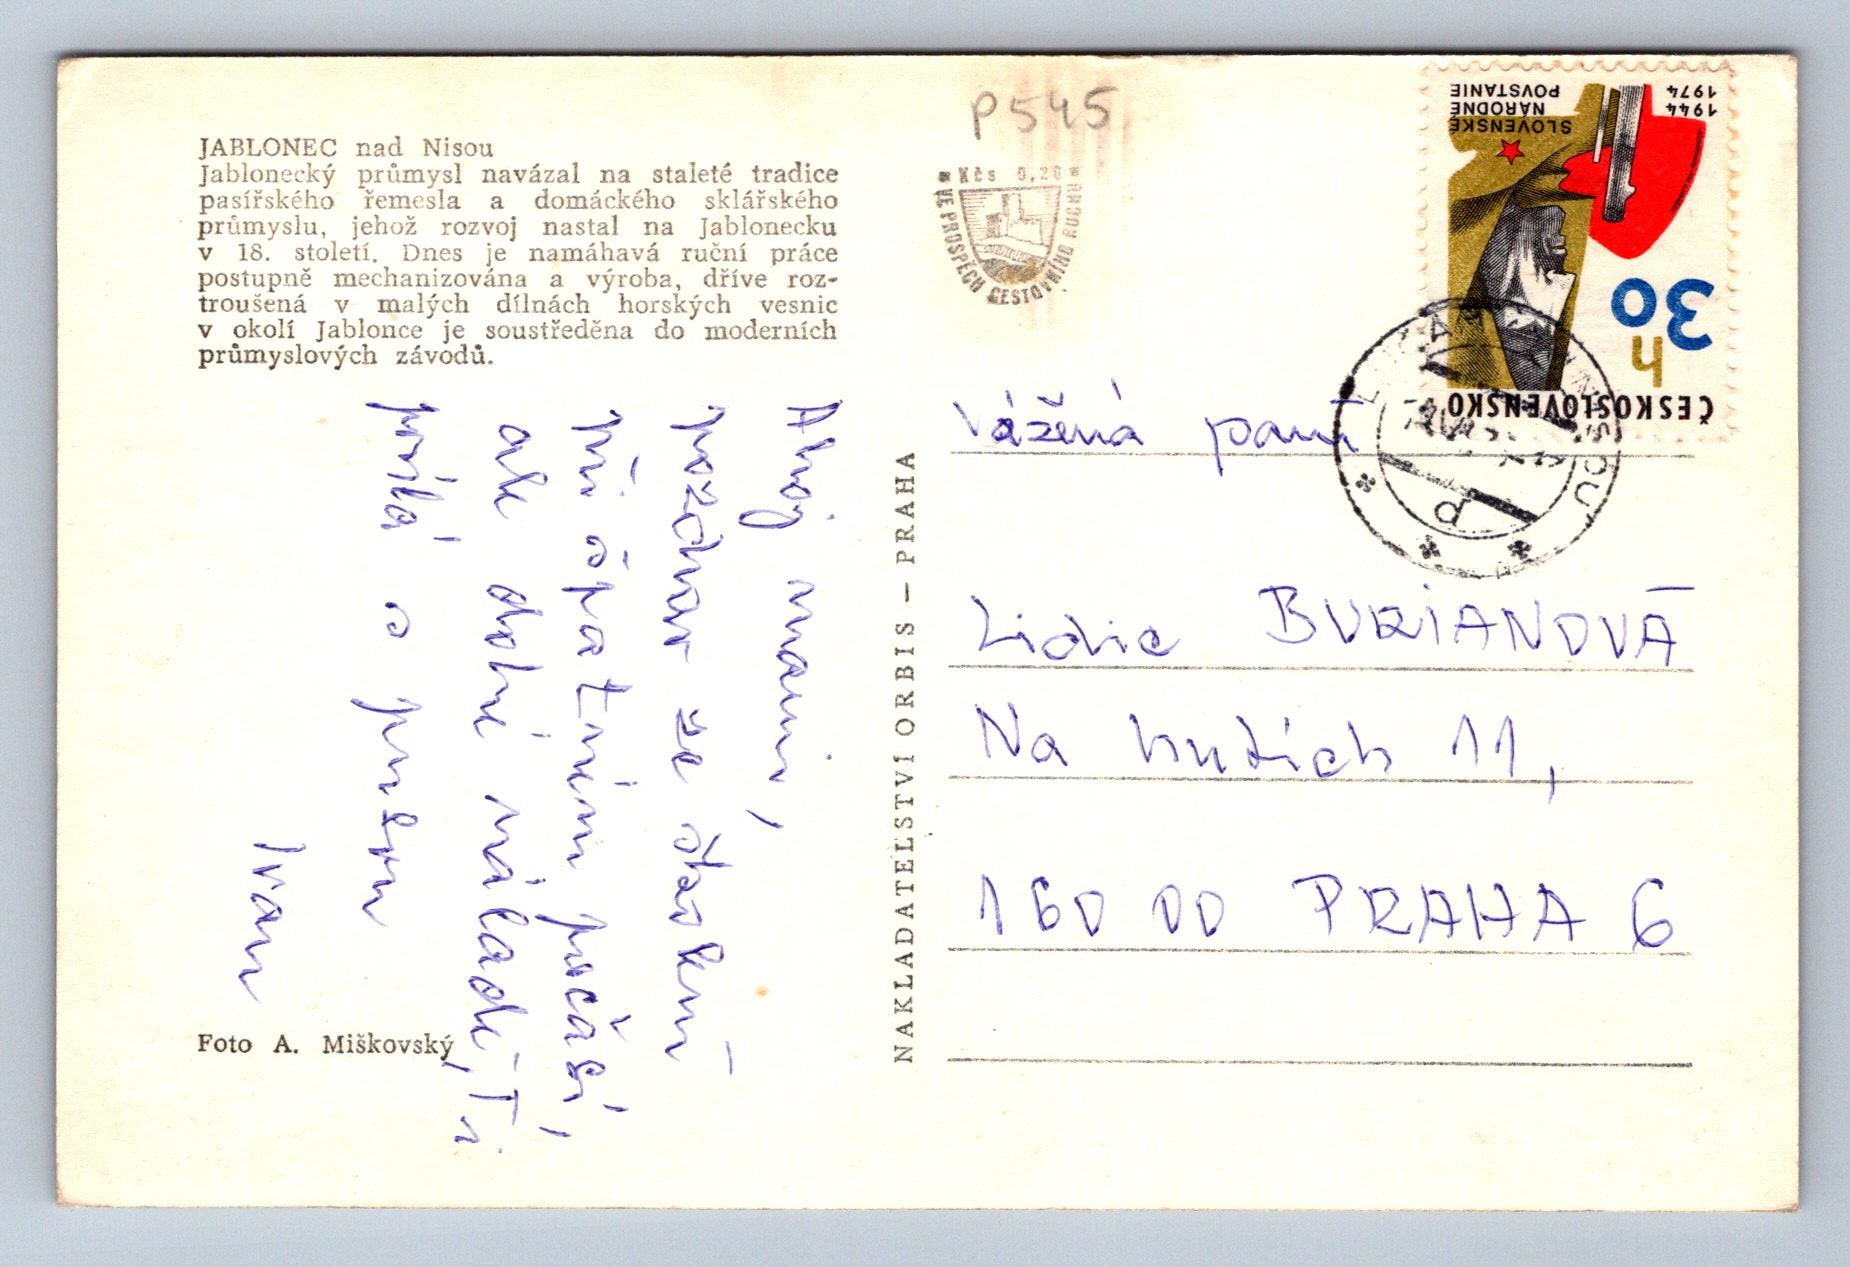 JABLONEC nad Nisou
Jablonecký průmysl navázal na staleté tradice
pasířského řemesla a domáckého sklářského
průmyslu, jehož rozvoj nastal na Jablonecku
v 18. století. Dnes je namáhavá ruční práce
postupně mechanizována a výroba, dříve roz-
troušená v malých dílnách horských vesnic
v okolí Jablonce je soustředěna do moderních
průmyslových závodů.
Ahoj mami,
pozdrav ze
při špatném počasí,
ale dobré náladě, Ti
posílá o
Ivan
Foto A. Miškovský
NAKLADATELSTVÍ ORBIS — PRAHA
P545
Kčs 0,20
VE PROSPĚCH CESTOVNÍHO RUCHU
SLOVENSKÉ
NÁRODNÉ
POVSTANIE
1944
1974
30
h
ČESKOSLOVENSKO
Vážená paní
Lidie BURIANOVÁ
Na hutích 11,
160 00 PRAHA 6